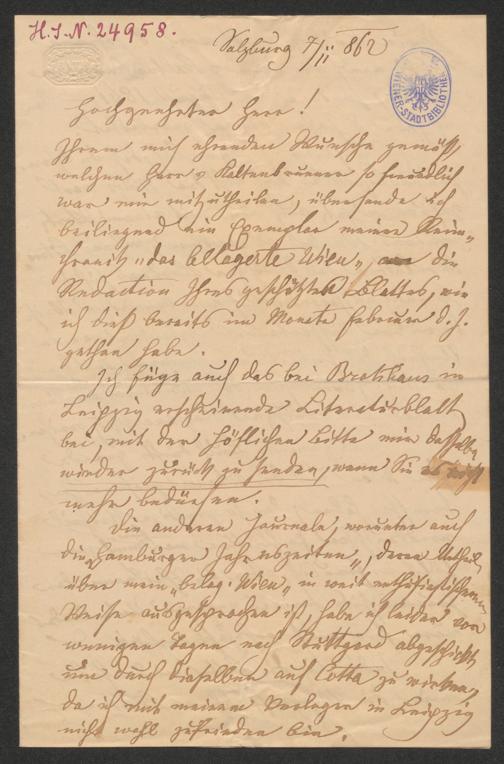 H.I.N. 24958.
Salzburg 7/11 862
WIENER-STADTBIBLIOTHEK
Hochgeehrter Herr!
Ihrem mich ehrenden Wunsche gemäß,
welchen Herr v Kaltenbrunner so freundlich
war mir mitzutheilen, übersende ich
beiliegend ein Exemplar meiner Reim-
chronik „das belagerte Wien„, an die
Redaction Ihres geschätzten Blattes, wie
ich dieß bereits im Monate Februar d. J.
gethan habe.
Ich füge auch das bei Brockhaus in
Leipzig erscheinende Literaturblatt
bei, mit der höflichen Bitte mir dasselbe
wieder zurück zu senden, wenn Sie es nicht
mehr bedürfen.
Die anderen Journale, worunter auch
die „Hamburger Jahreszeiten„, deren Urtheil
über mein „belag. Wien„ in weit enthusiastischerer
Weise ausgesprochen ist, habe ich leider vor
wenigen Tagen nach Stuttgard abgeschickt,
um durch dieselben auf Cotta zu wirken,
da ich mit meinem Verleger in Leipzig
nicht wohl zufrieden bin.